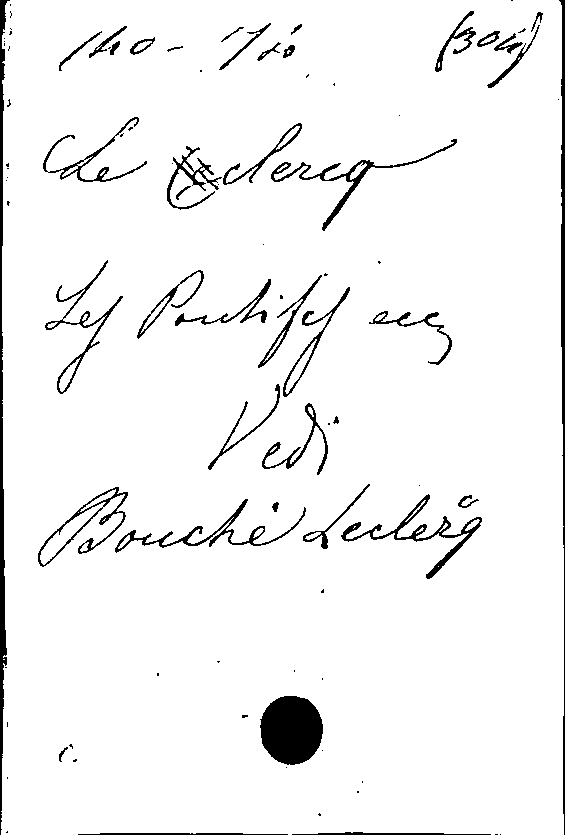 140-
(304)
Le clercq
Les Pontifes ecc
Vedi
Bouché Leclercq
c.